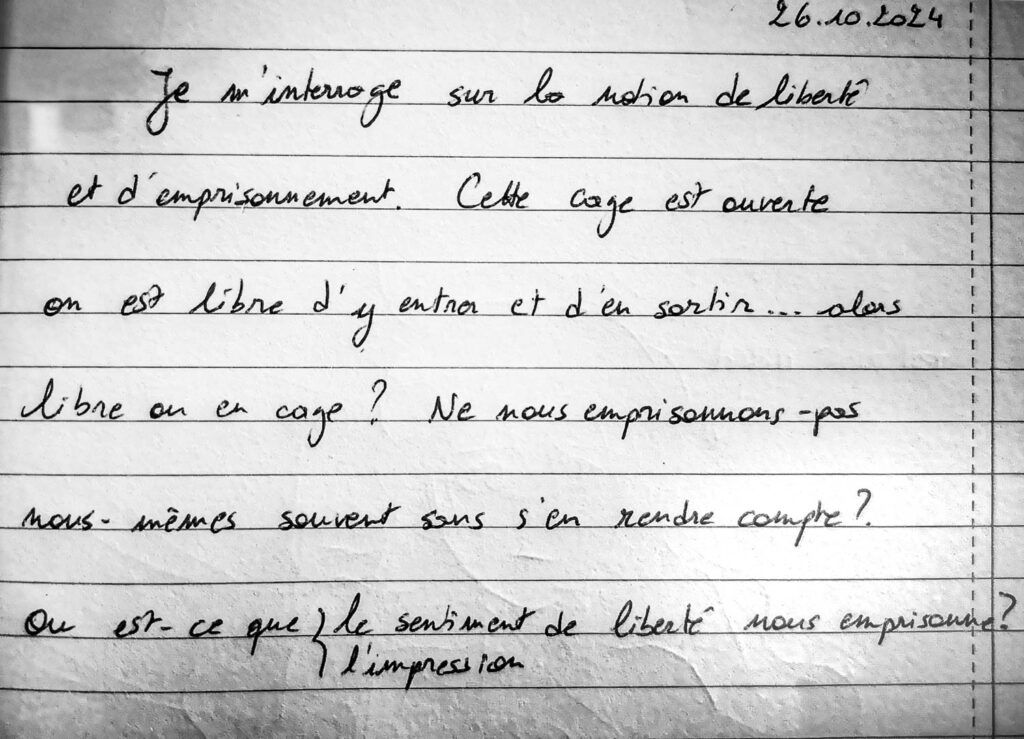 26.10.2024
Je m'interroge sur la notion de liberté
et d'emprisonnement. Cette cage est ouverte
on est libre d'y entrer et d'en sortir... alors
libre ou en cage ? Ne nous emprisonnons-pas
nous-mêmes souvent sans s'en rendre compte ?
Ou est-ce que } le sentiment de liberté nous emprisonne ?
l'impression